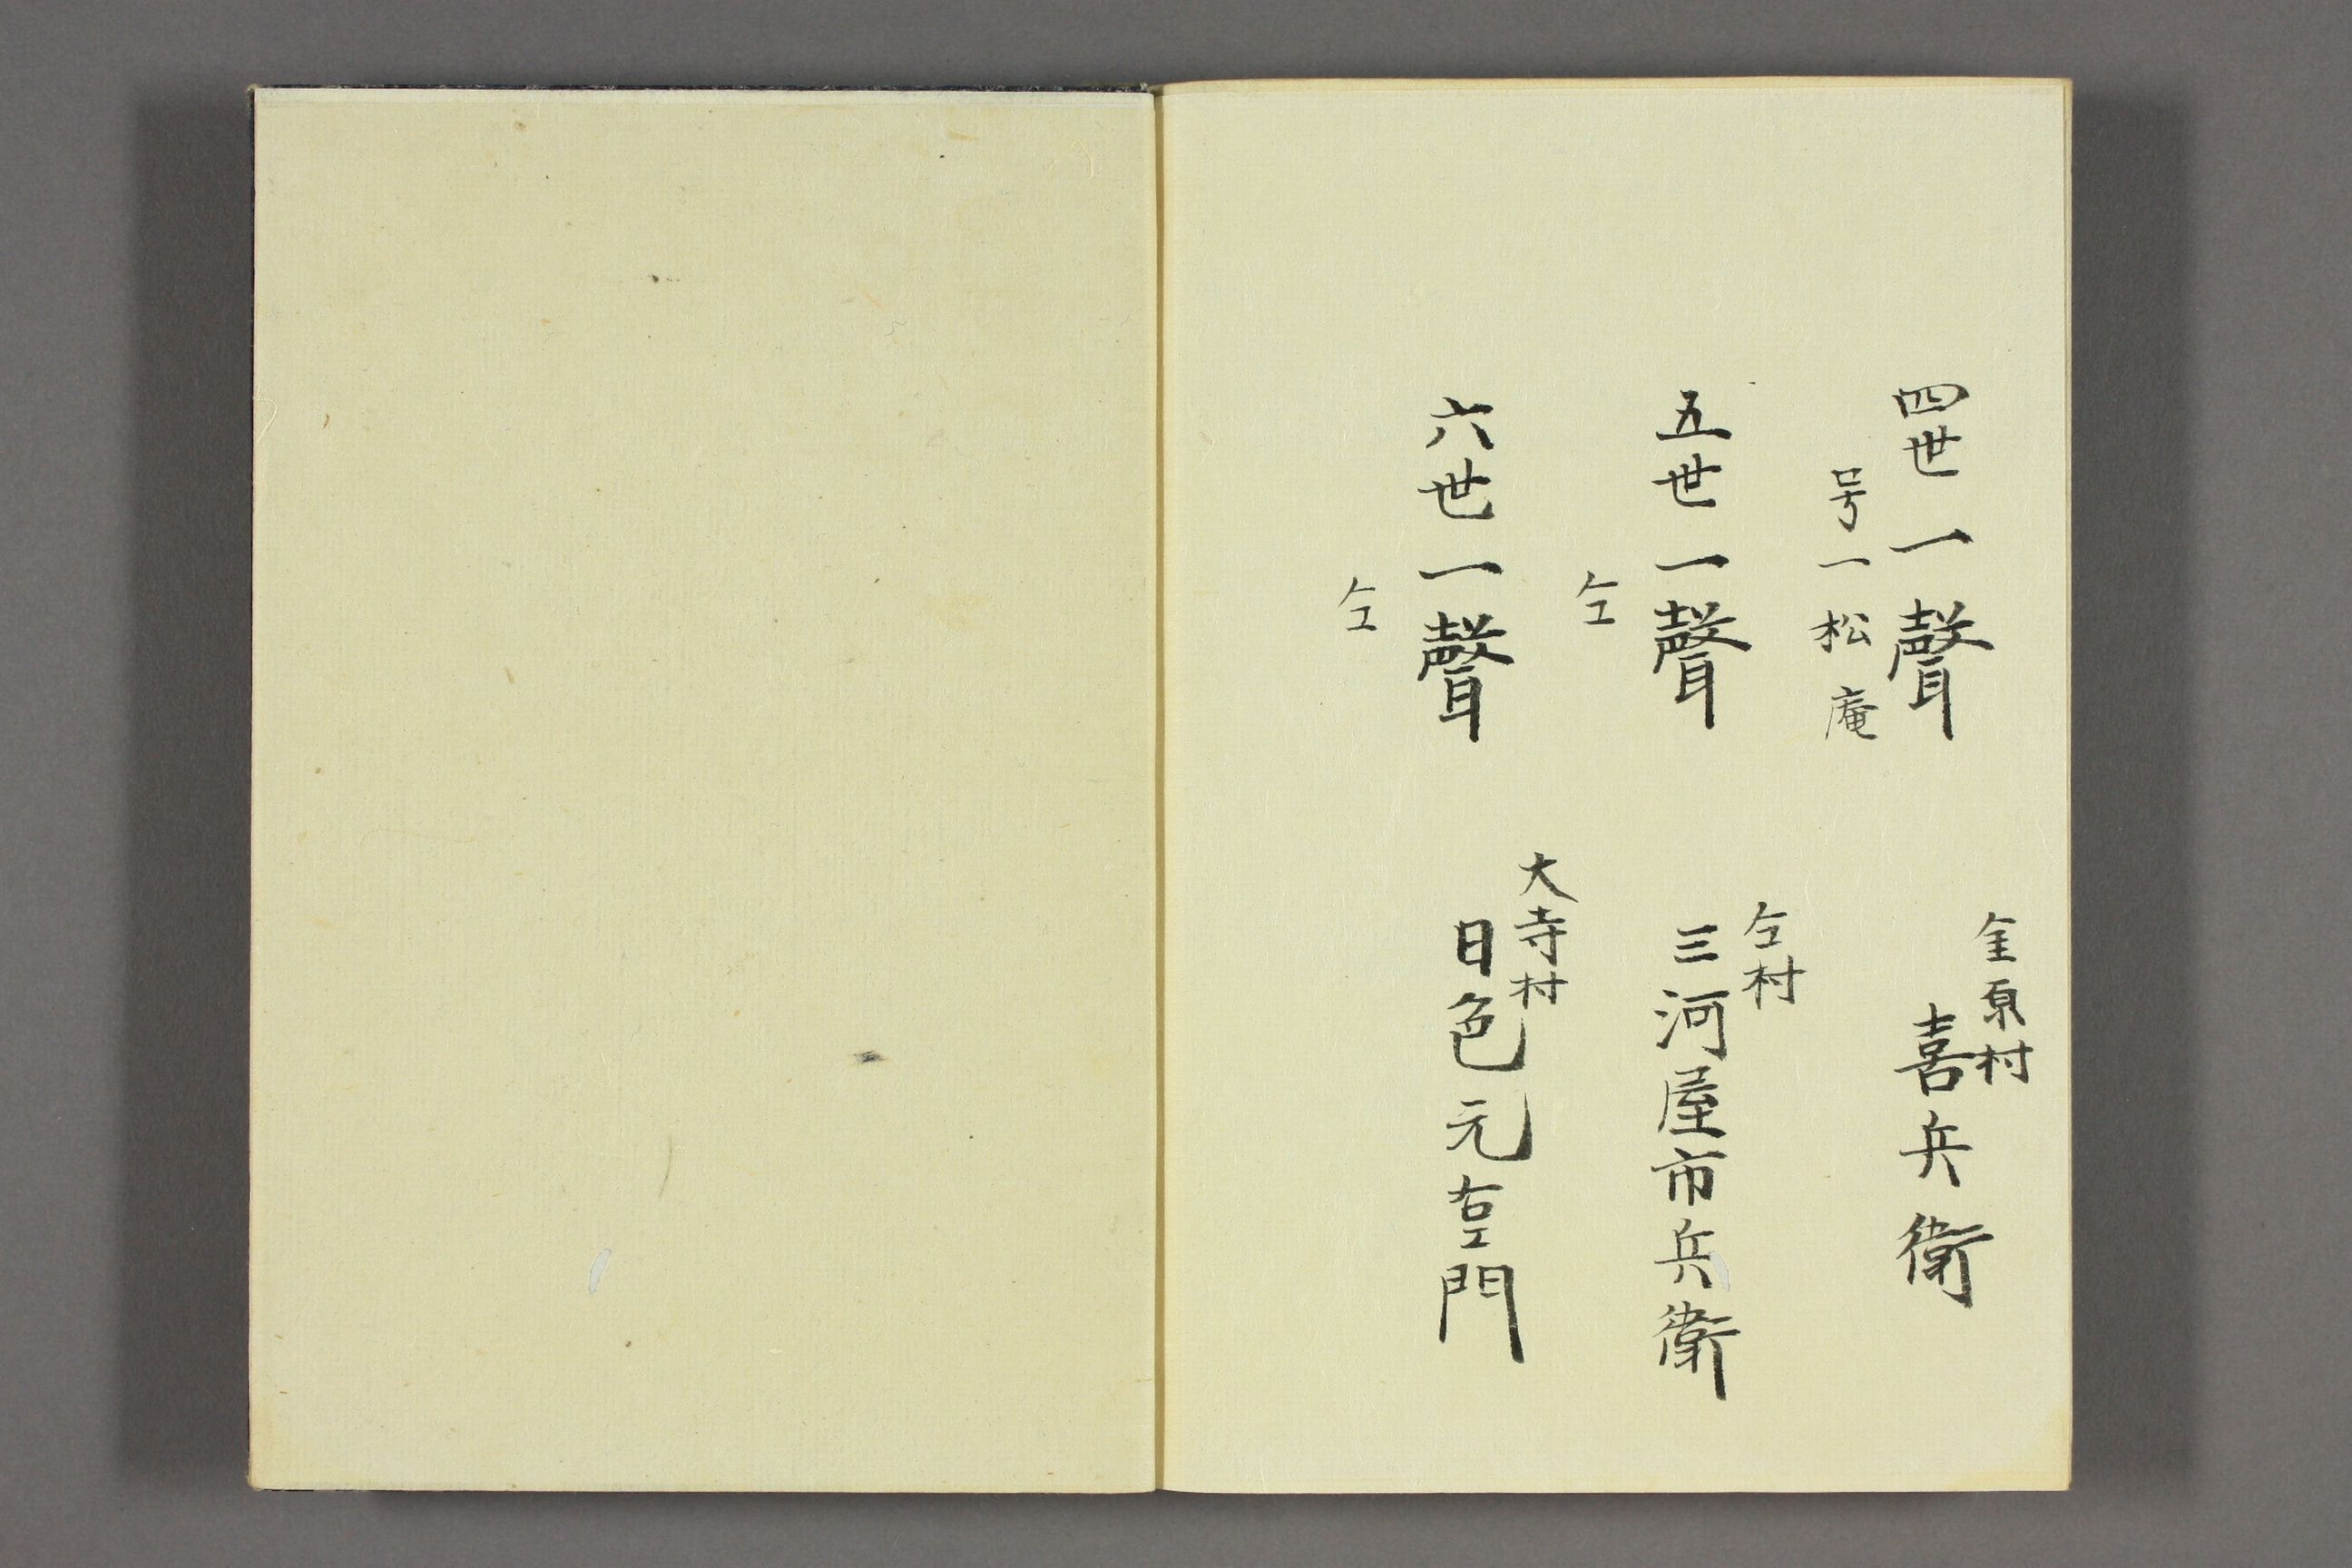 四世一聲
号一松庵
金原村
喜兵衛
五世一聲
仝
仝村
三河屋市兵衛
六世一聲
仝
大寺村
日色元右エ門